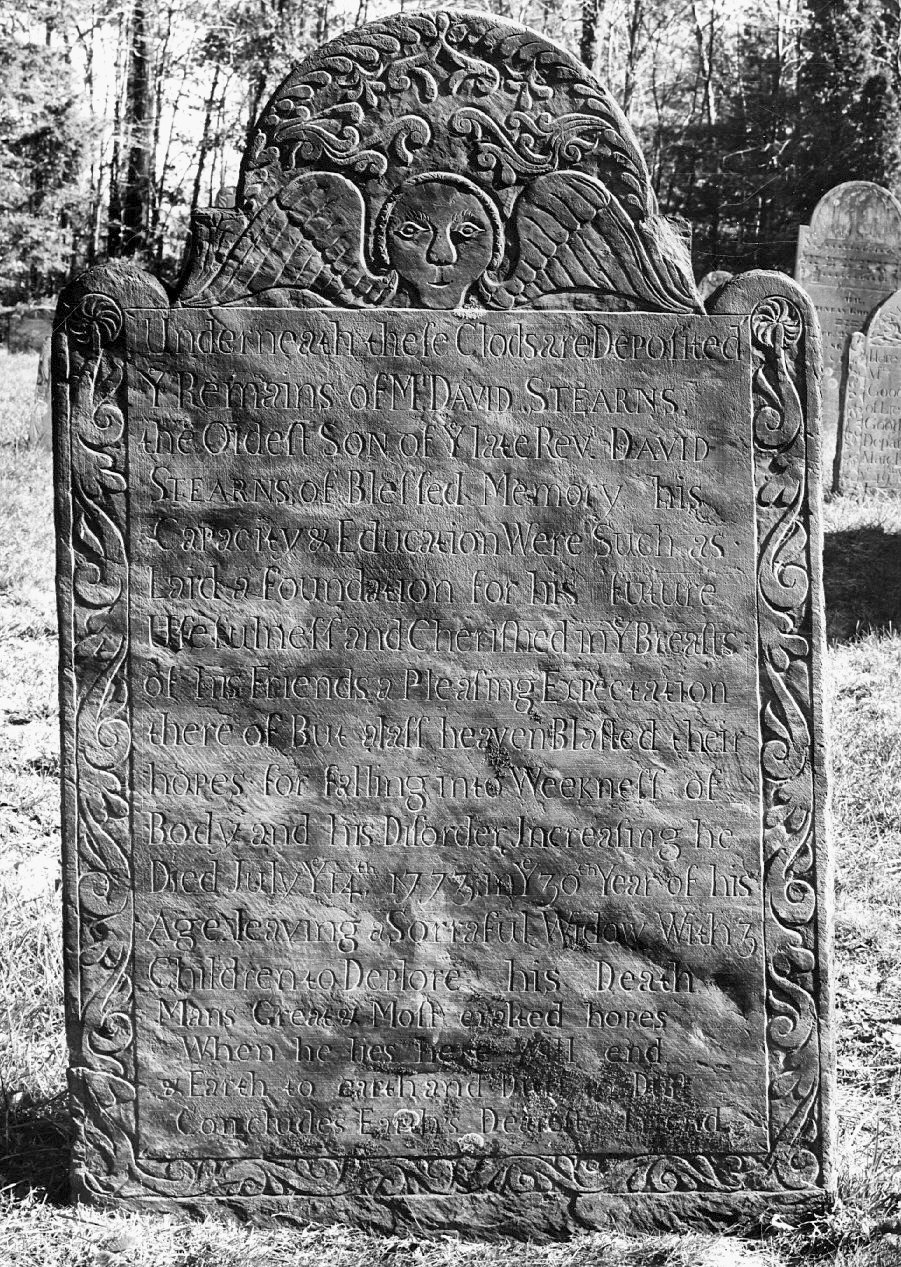 Underneath theſe Clods are Depoſited
Yᵉ Remains of Mʳ DAVID STEARNS,
the Oldeſt SON of Yᵉ late Rev. DAVID
STEARNS of Bleſſed Memory, his
Capacity & Education Were Such as
Laid a foundation for his future
Uſefulneſſ and Cheriſhed in Yᵉ Breaſts
of his Friends, a Pleaſing Expectation
there of But alaſſ heaven Blaſted their
hopes for falling into Weekneſſ of
Body and his Diſorder Increaſing he
Died July Yᵉ 14ᵗʰ 1773 in Yᵉ 30ᵗʰ Year of his
Age leaving a Sorraful Widow With 3
Children to Deplore his Death
Mans Great & Moſt exalted hopes
When he lies here Will end
& Earth to earth and Duſt to Duſt
Concludes Earth's Deareſt friend